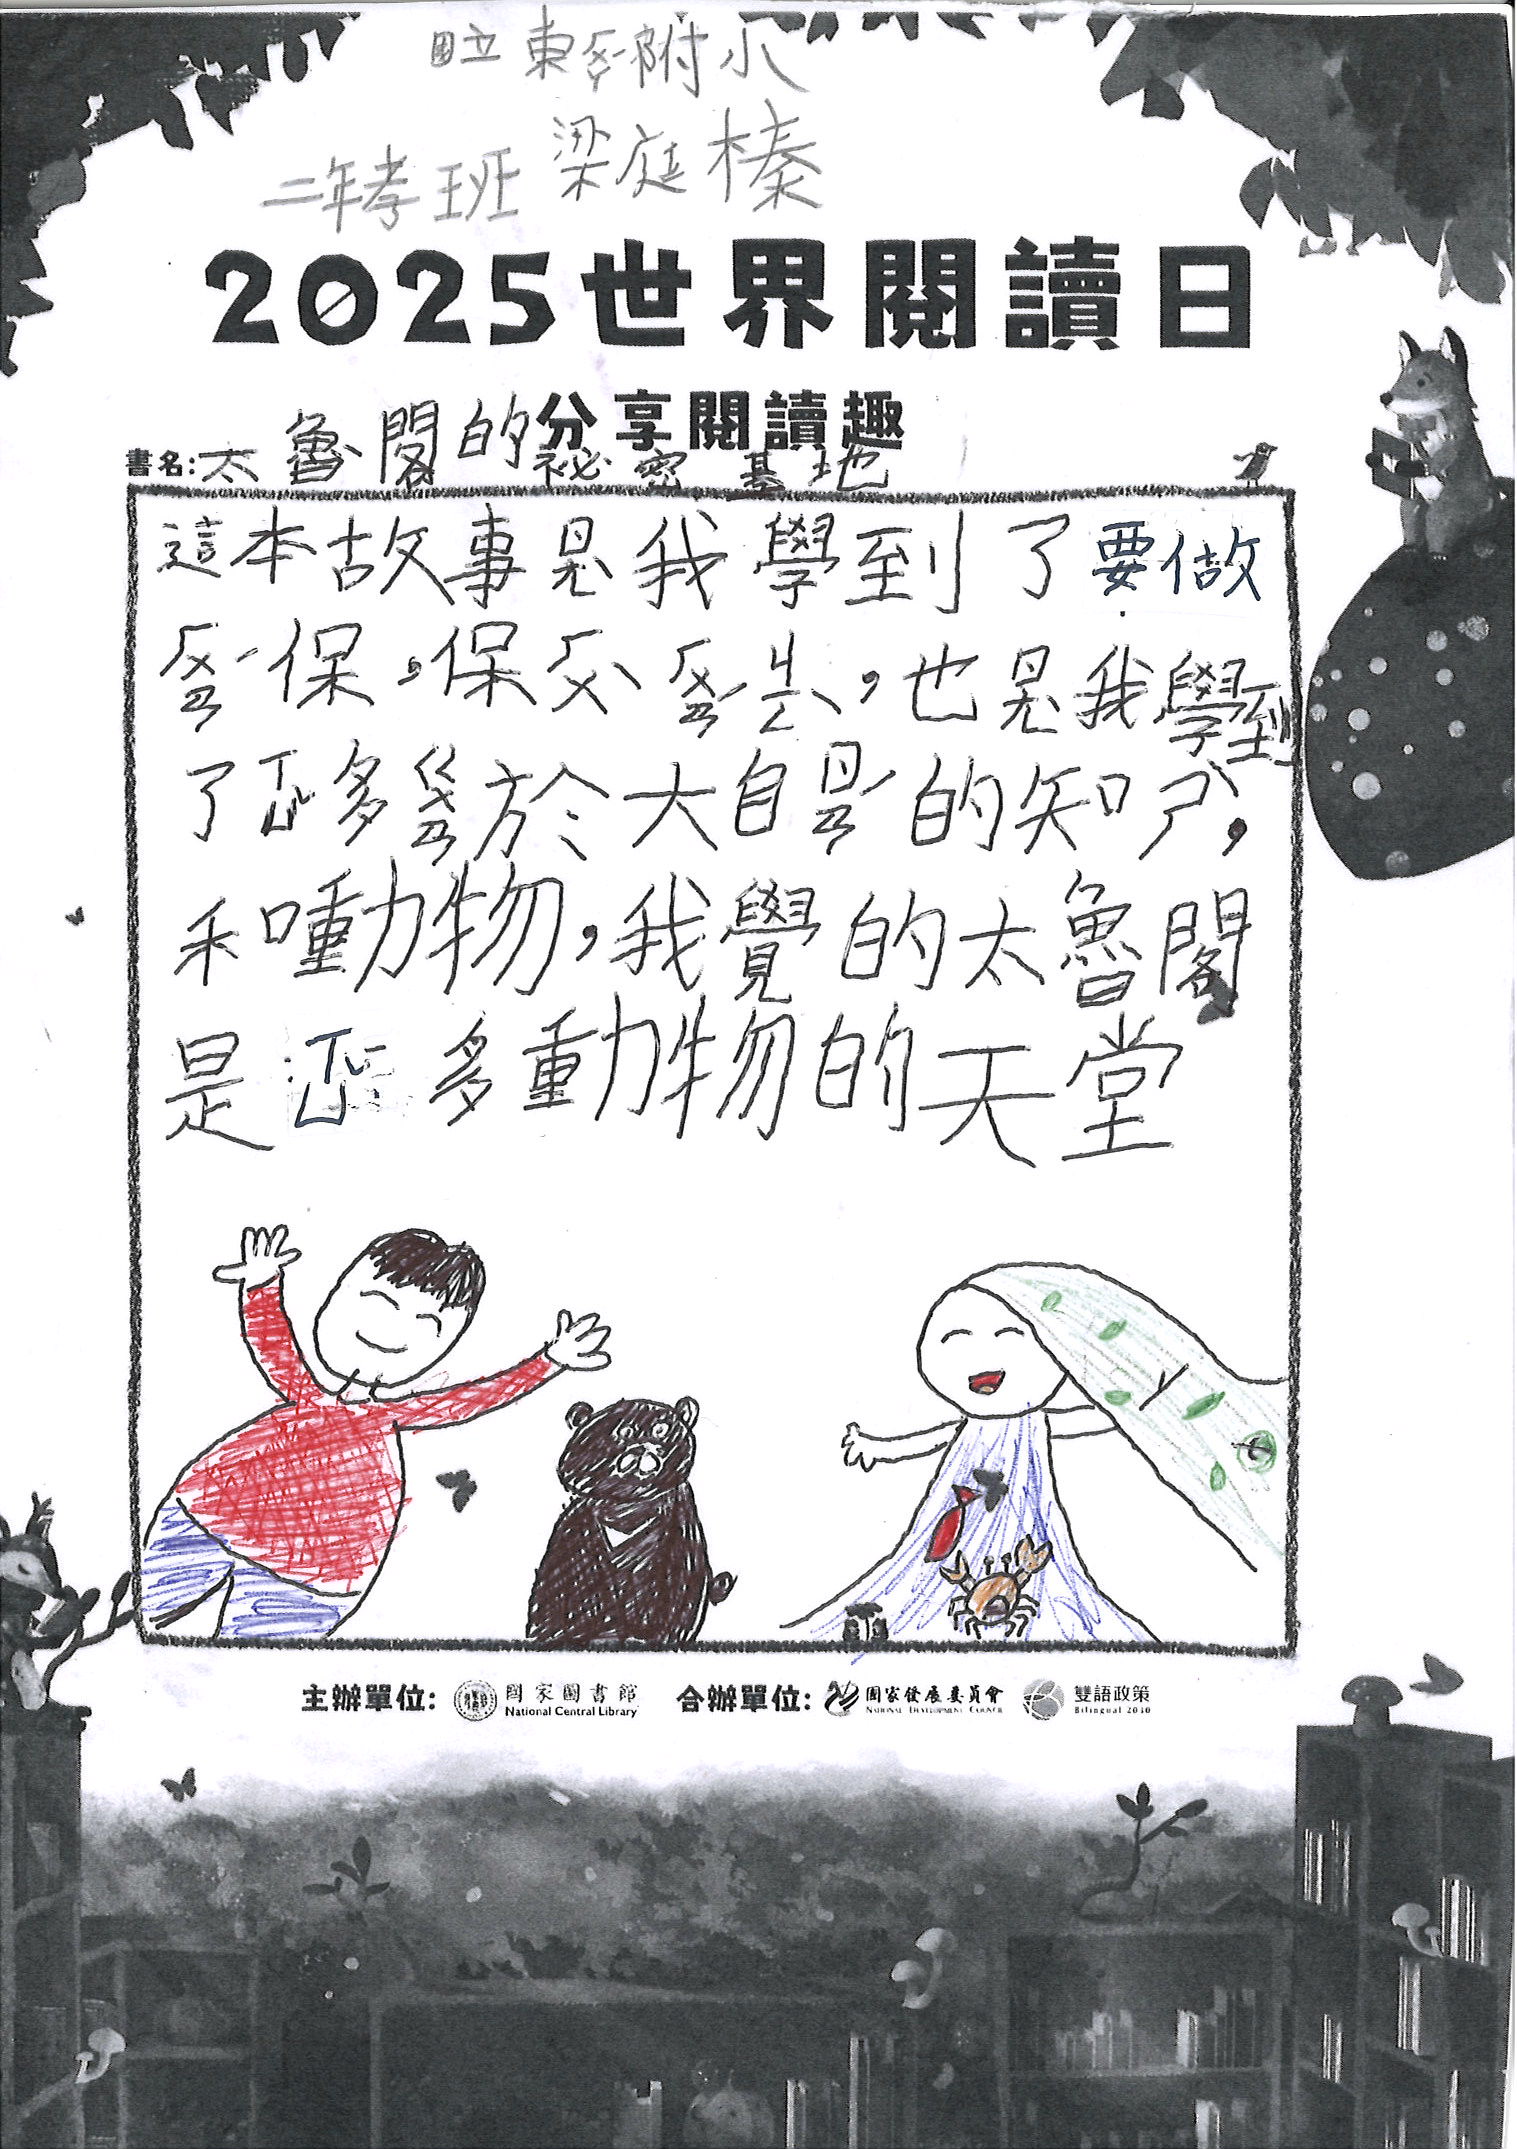 國立東附小
二年孝班 梁庭榛
2025世界閱讀日
分享閱讀趣
書名:太魯閣的祕密基地
這本故事是我學到了要做
ㄏㄨㄢˊ保,保ㄏㄨˋㄏㄨㄢˊㄐㄧㄥˋ,也是我學到
了ㄒㄩˇ多ㄍㄨㄢ於大自ㄖㄢˊ的知ㄕˋ,
和動物,我覺的太魯閣
是ㄒㄩˇ多動物的天堂
主辦單位: 國家圖書館 National Central Library 合辦單位: 國家發展委員會 NATIONAL DEVELOPMENT COUNCIL 雙語政策 Bilingual 2030